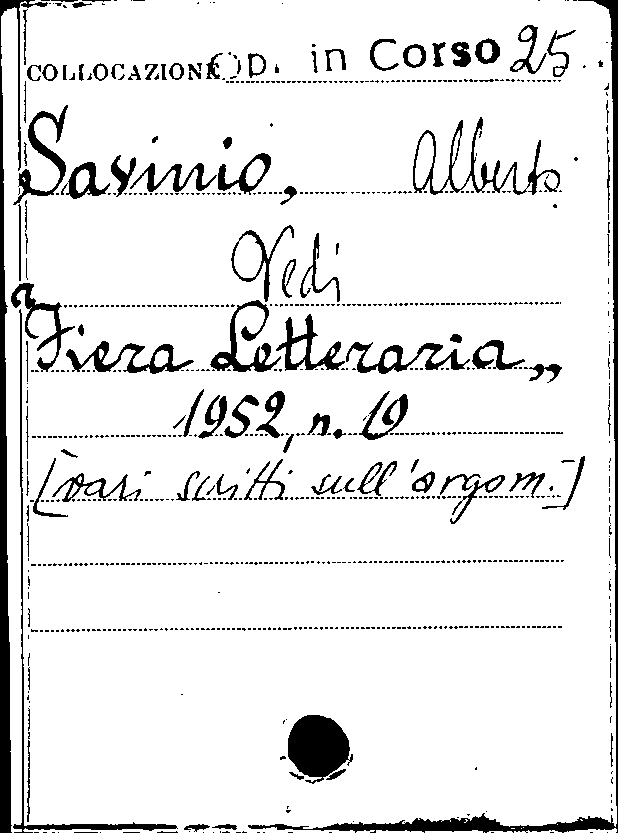 COLLOCAZIONE Op. in Corso 25
Savinio, Alberto
Vedi
"Fiera Letteraria„
1952, n. 19
[vari scritti sull'argom.]